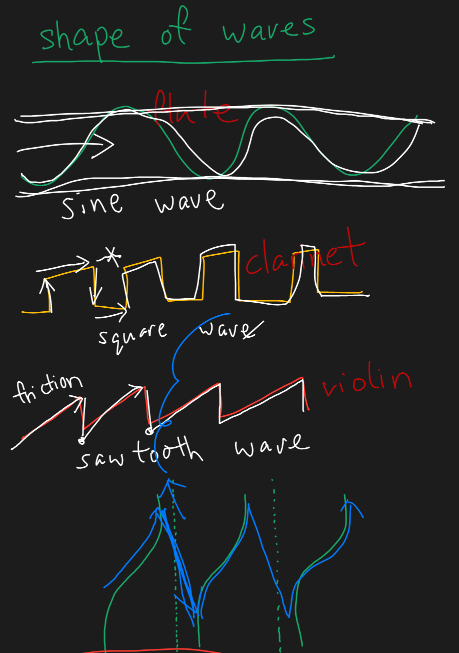 shape of waves
flute
sine wave
clarinet
square wave
friction
violin
sawtooth wave